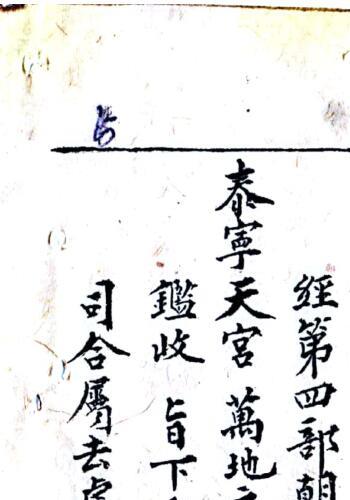 經第四部朝
泰寧天宮 萬地
鑑收 旨下
司合屬去處